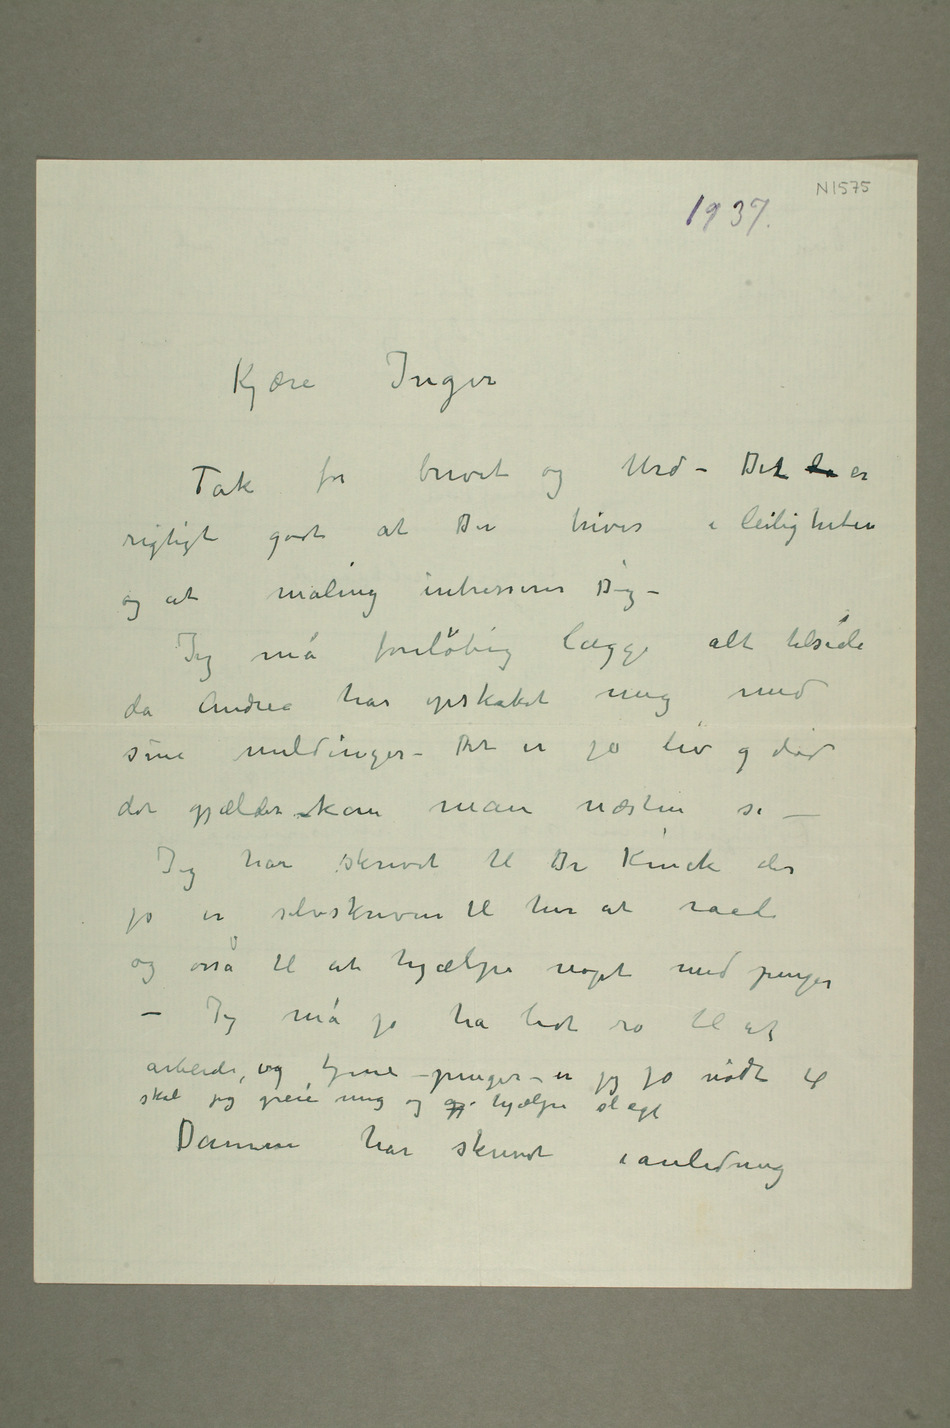 N1575
1937.
Kjære Inger
Tak for brevet og Urd – Det da er
rigtigt godt at Du trives i leiligheten
og at maling intresserer Dig –
Jeg må foreløbig lægge alt tilside
da Andrea har opskaket mig med
sine meldinger – Det er jo liv og død
det gjælder – kan man næsten si –
Jeg har skrevet til Dr Kinck der
jo er selvskreven til her at raade
og osså til at hjælpe noget med penger
– Jeg må jo ha lidt ro til at
arbeide, og tjene penger – er jeg jo nødt til
skal jeg greie mig og hjælpe slægt
Damm har skrevet i anledning